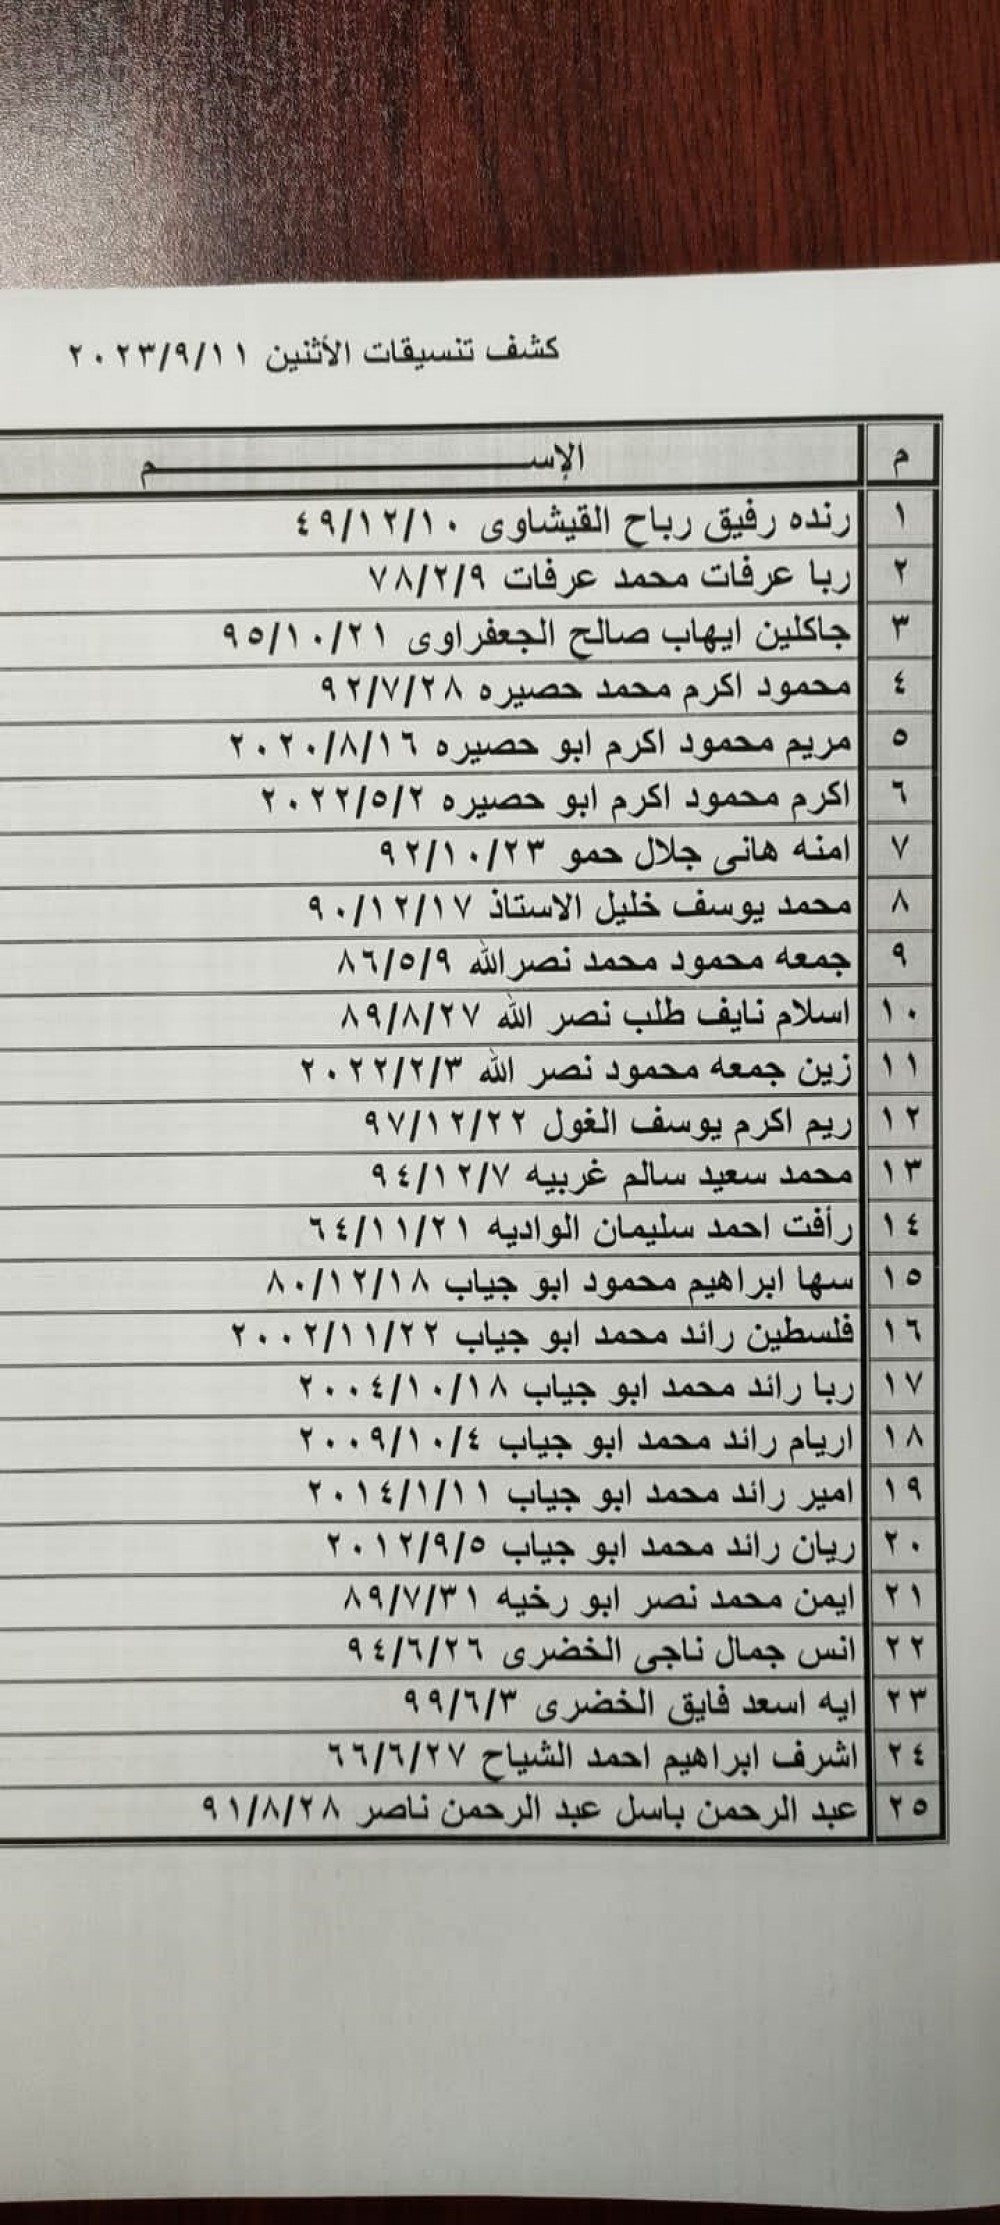 كشف تنسيقات الأثنين ٢٠٢٣/٩/١١
م الإســـــــــــم
١ رنده رفيق رباح القيشاوى ٤٩/١٢/١٠
٢ ربا عرفات محمد عرفات ٧٨/٢/٩
٣ جاكلين ايهاب صالح الجعفراوى ٩٥/١٠/٢١
٤ محمود اكرم محمد حصيره ٩٢/٧/٢٨
٥ مريم محمود اكرم ابو حصيره ٢٠٢٠/٨/١٦
٦ اكرم محمود اكرم ابو حصيره ٢٠٢٢/٥/٢
٧ امنه هانى جلال حمو ٩٢/١٠/٢٣
٨ محمد يوسف خليل الاستاذ ٩٠/١٢/١٧
٩ جمعه محمود محمد نصرالله ٨٦/٥/٩
١٠ اسلام نايف طلب نصر الله ٨٩/٨/٢٧
١١ زين جمعه محمود نصر الله ٢٠٢٢/٢/٣
١٢ ريم اكرم يوسف الغول ٩٧/١٢/٢٢
١٣ محمد سعيد سالم غربيه ٩٤/١٢/٧
١٤ رأفت احمد سليمان الواديه ٦٤/١١/٢١
١٥ سها ابراهيم محمود ابو جياب ٨٠/١٢/١٨
١٦ فلسطين رائد محمد ابو جياب ٢٠٠٢/١١/٢٢
١٧ ربا رائد محمد ابو جياب ٢٠٠٤/١٠/١٨
١٨ اريام رائد محمد ابو جياب ٢٠٠٩/١٠/٤
١٩ امير رائد محمد ابو جياب ٢٠١٤/١/١١
٢٠ ريان رائد محمد ابو جياب ٢٠١٢/٩/٥
٢١ ايمن محمد نصر ابو رخيه ٨٩/٧/٣١
٢٢ انس جمال ناجى الخضرى ٩٤/٦/٢٦
٢٣ ايه اسعد فايق الخضرى ٩٩/٦/٣
٢٤ اشرف ابراهيم احمد الشياح ٦٦/٦/٢٧
٢٥ عبد الرحمن باسل عبد الرحمن ناصر ٩١/٨/٢٨